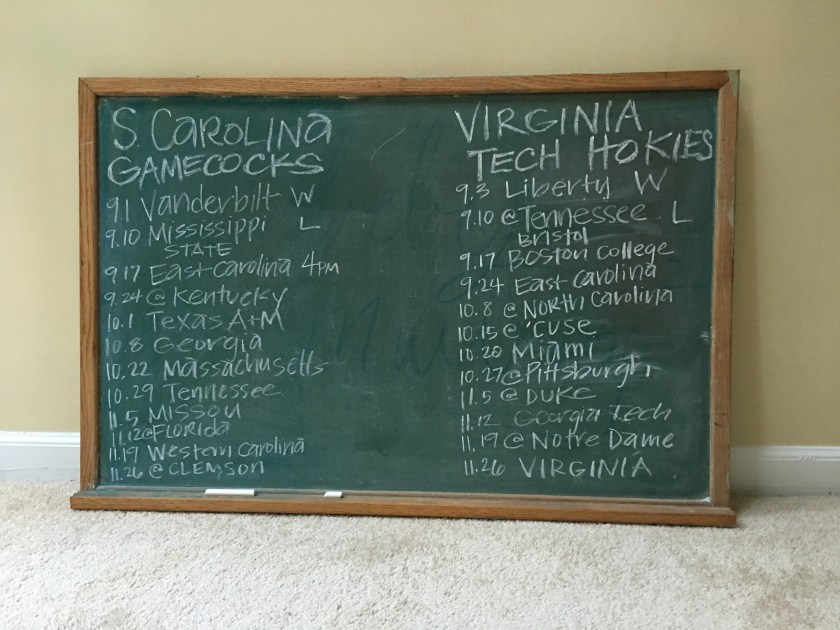 S. CAROLINA
GAMECOCKS
9.1 Vanderbilt W
9.10 Mississippi L
STATE
9.17 East Carolina 4PM
9.24 @ Kentucky
10.1 Texas A+M
10.8 Georgia
10.22 Massachusetts
10.29 Tennessee
11.5 MISSOU
11.12 @ FLORIDA
11.19 Western Carolina
11.26 @ CLEMSON
VIRGINIA
TECH HOKIES
9.3 Liberty W
9.10 @ Tennessee L
Bristol
9.17 Boston College
9.24 East Carolina
10.8 @ North Carolina
10.15 @ 'CUSE
10.20 Miami
10.27 @ Pittsburgh
11.5 @ DUKE
11.12 Georgia Tech
11.19 @ Notre Dame
11.26 VIRGINIA